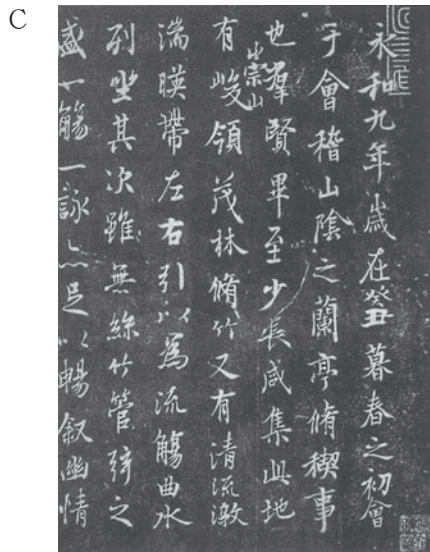 C
永和九年歲在癸丑暮春之初會
于會稽山陰之蘭亭脩稧事
也羣賢畢至少長咸集此地
崇山
有峻領茂林脩竹又有清流激
湍暎帶左右引以為流觴曲水
列坐其次雖無絲竹管弦之
盛一觴一詠亦足以暢叙幽情